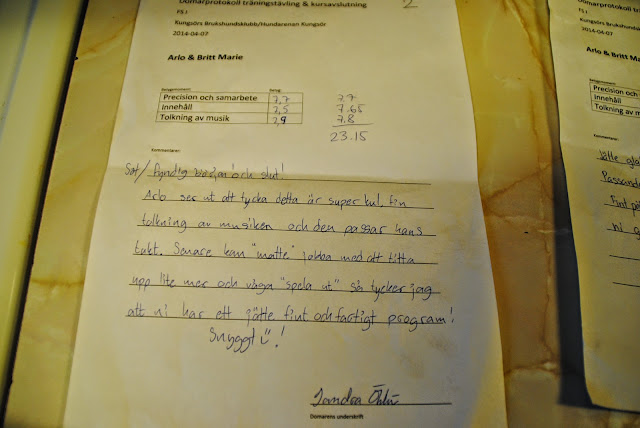 Domarprotokoll träningstävling & kursavslutning
2
FS I
Kungsörs Brukshundsklubb/Hundarenan Kungsör
2014-04-07
Arlo & Britt Marie
Precision och samarbete 7,7 7,7
Innehåll 7,5 7.65
Tolkning av musik 7,9 7.8
23.15
Kommentarer:
Söt/Fyndig början och slut!
Arlo ser ut att tycka detta är super kul. Fin
tolkning av musiken och den passar hans
takt. Senare kan "matte" jobba med att titta
upp lite mer och våga "spela ut" så tycker jag
att ni har ett jätte fint och fartigt program!
Snyggt !
Sandra
Domarens underskrift
FS I
Kungsörs Brukshun
2014-04-07
Arlo & Britt Ma
Precision och
Innehåll
Tolkning av m
Kommentarer:
Jätte gla
Passand
Fint
ni